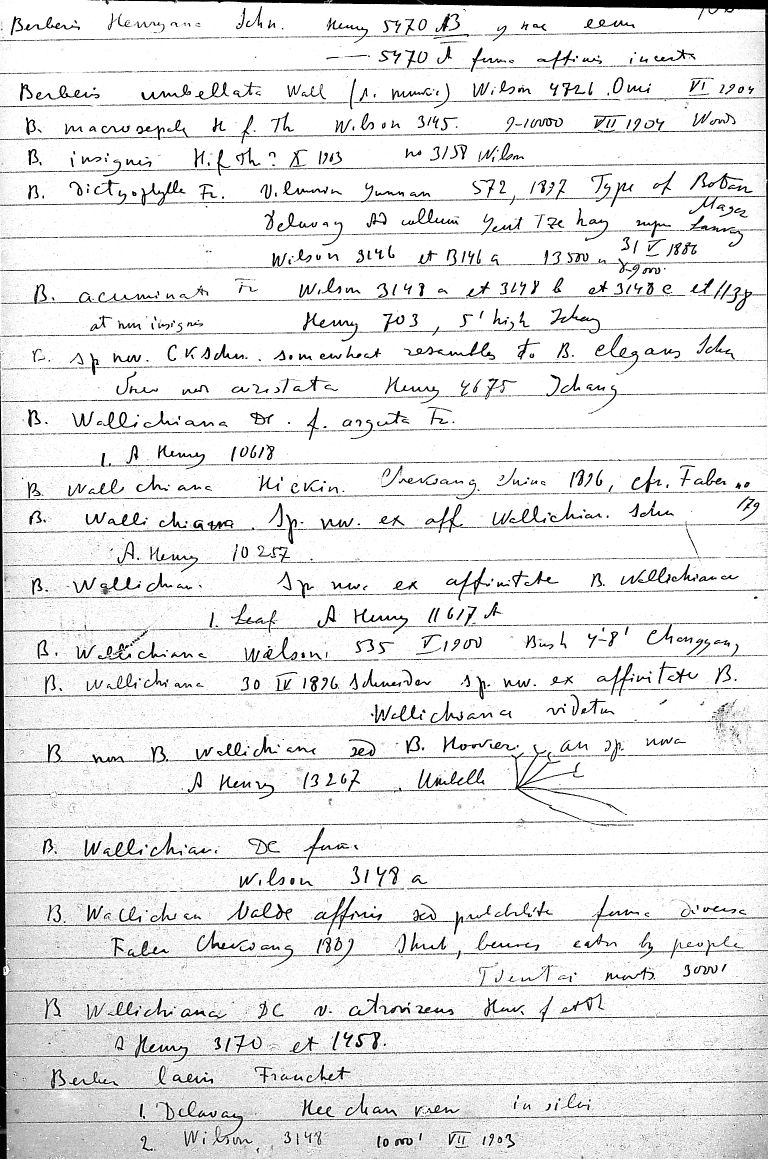 Berberis Henryana Schn. Henry 5470 AB
5470 A forma affinis incerta
Berberis umbellata Wall Wilson 4726 Omi VI 1904
B. macrosepala H f. Th Wilson 3145. 9-10000 VII 1904 Woods
B. insignis H.f. Th? X 1903 no 3158 Wilson
B. dictyophylla Fr. Vilmorin Yunnan 572, 1897 Type of Botan Magaz
Delavay Ad collum Yent Tze hay supra Lankong
Wilson 3146 et 3146 a 13500 31 V 1886
8-9000
B. acuminata Fr Wilson 3148 a et 3148 b et 3148 c et 1138
at non insignis Henry 703, 5' high Ichang
B. sp nov. CKSchn. somewhat resembles to B. elegans Schn
non aristata Henry 4675 Ichang
B. Wallichiana Dc. f. arguta Fr.
1. A Henry 10618
B Wallichiana Hickin. Chekiang China 1896, cfr. Faber no
B. Wallichiana. Sp. nov. ex aff Wallichian. Schn 179
A. Henry 10257
B. Wallichian. Sp nov. ex affinitate B. Wallichianae
1. Leaf A Henry 11617 A
B. Wallichiana Wilson. 535 V 1900 Bush 4'-8' Changyang
B. Wallichiana 30 IV 1896 Schneider sp. nov. ex affinitate B.
Wallichiana videtur
B non B. Wallichiana sed B. Hookeri, an sp. nova
A Henry 13267. Umbelle
B. Wallichian. DC forma
Wilson 3148 a
B. Wallichian Valde affinis sed forma diversa
Faber Chekiang 1889 Shrub, berries eaten by people
Tientai mont. 3000'
B Wallichiana DC v. atrovirens Hook f et Th
A Henry 3170 et 1458.
Berber laevis Franchet
1. Delavay Hee chan men in silvi
2. Wilson, 3148 10000' VII 1903